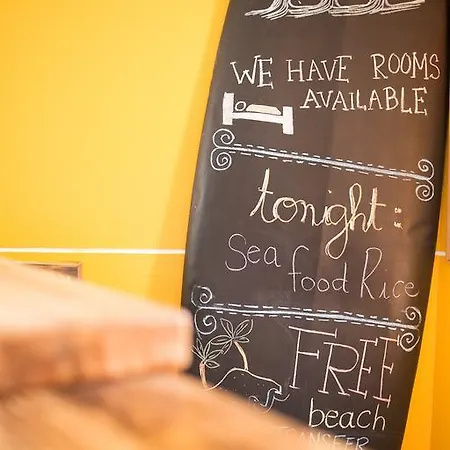 WE HAVE ROOMS
AVAILABLE
tonight:
Sea food Rice
FREE
beach
TRANSFER